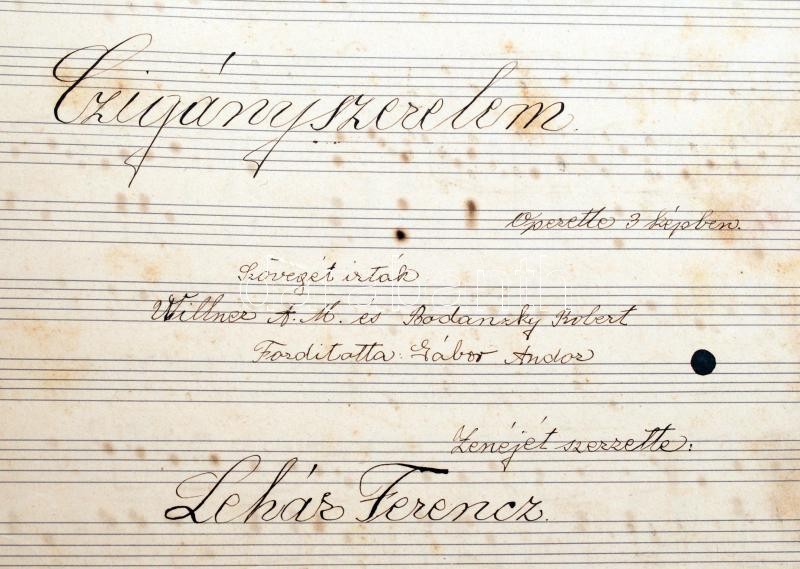 Czigányszerelem.
Operette 3 képben.
Szövegét irták
Willner A. M. és Bodanzky Robert
Forditotta: Gábor Andor
Zenéjét szerzette:
Lehár Ferencz.